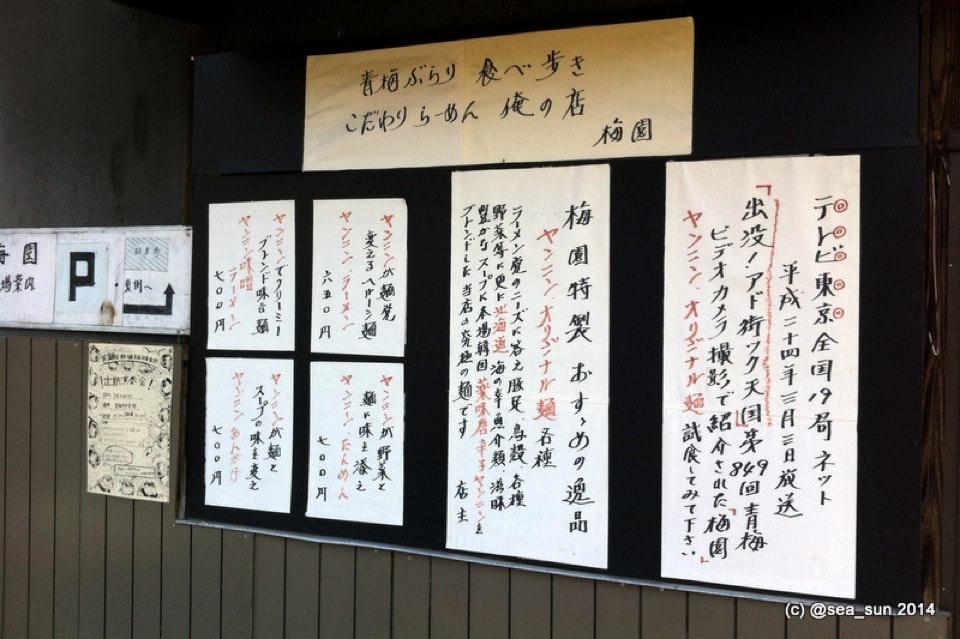 青梅ぶらり 食べ歩き
こだわりらーめん 俺の店
梅園
テレビ東京全国19局ネット
平成二十四年三月三日放送
「出没!アド街ック天国」第849回青梅
ビデオカメラ撮影で紹介された「梅園
ヤンニン、オリヂナル麺 試食してみて下さい」
梅園特製 おすゝめの逸品
ヤンニン、オリヂナル麺 各種
ラーメン党のニーズに答え豚足、鳥殻、各種
野菜等に更に北海道 海の幸魚介類、滋味
豊かなスープに本場韓国薬味唐辛子ヤンニンを
ブレンドした当店の究極の麺です 店主
ヤンニンが麺覚
変えるヘルーシ麺
ヤンニン、ラーメン
六五〇円
ヤンニンでクリーミー
ブレンド味合麺
ヤンニン味噌
ラーメン
七〇〇円
ヤンニンが野菜と
麺に味を添え
ヤンニン、たんめん
七〇〇円
ヤンニンが麺と
スープの味を変え
ヤンニン あんかけ
七〇〇円
梅園
場案内
P
駐車場
裏側へ
(c) @sea_sun 2014